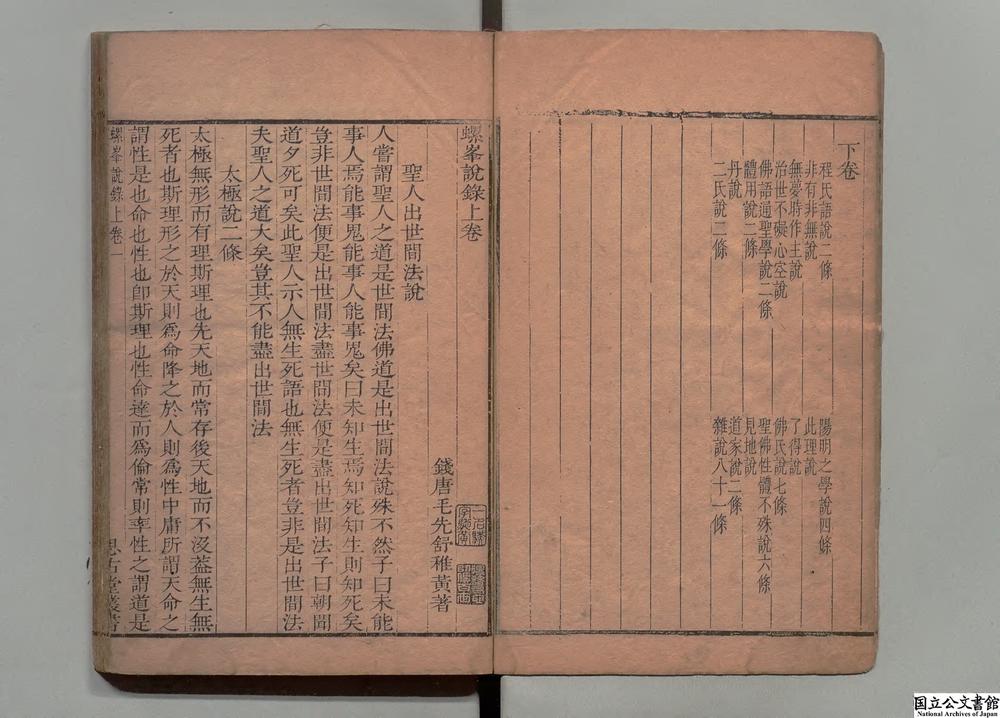 下卷
程氏語說二條
陽明之學說四條
非有非無說
此理說
無夢時作主說
了得說
治世不礙心空說
佛氏說七條
佛語通聖學說二條
聖佛性體不殊說六條
體用說二條
見地說
丹說
道家說二條
二氏說二條
雜說八十一條
螺峯說錄上卷
錢唐毛先舒稚黃著
聖人出世間法說
人嘗謂聖人之道是世間法佛道是出世間法說殊不然子曰未能
事人焉能事鬼能事人能事鬼矣曰未知生焉知死知生則知死矣
豈非世間法便是出世間法盡世間法便是盡出世間法子曰朝聞
道夕死可矣此聖人示人無生死語也無生死者豈非是出世間法
夫聖人之道大矣豈其不能盡出世間法
太極說二條
太極無形而有理斯理也先天地而常存後天地而不沒蓋無生無
死者也斯理形之於天則爲命降之於人則爲性中庸所謂天命之
謂性是也命也性也卽斯理也性命達而爲倫常則率性之謂道是
螺峯說錄上卷 一
思古堂叢書
国立公文書館
National Archives of Japan